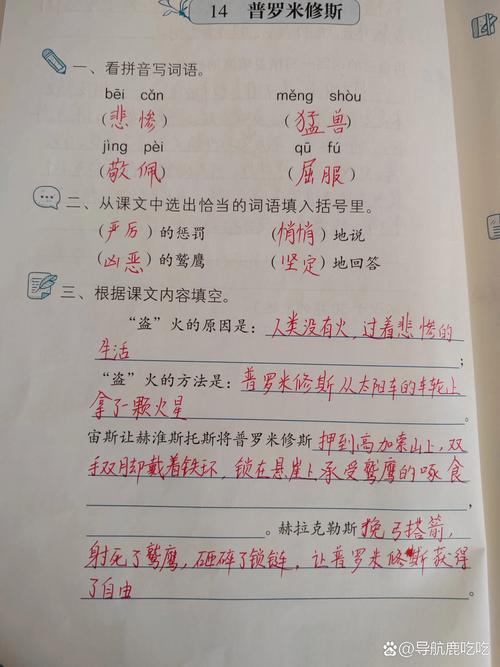 14 普罗米修斯
一、看拼音写词语。
bēi cǎn měng shòu
(悲惨) (猛兽)
jìng pèi qū fú
(敬佩) (屈服)
二、从课文中选出恰当的词语填入括号里。
(严厉)的惩罚 (悄悄)地说
(凶恶)的鹫鹰 (坚定)地回答
三、根据课文内容填空。
“盗”火的原因是：人类没有火，过着悲惨的
生活；
“盗”火的方法是：普罗米修斯从太阳车的车轮上
拿了一颗火星
宙斯让赫淮斯托斯将普罗米修斯押到高加索山上，双
手双脚戴着铁环，锁在悬崖上承受鹫鹰的啄食
。赫拉克勒斯挽弓搭箭，
射死了鹫鹰，砸碎了锁链，让普罗米修斯获得
了自由。
导航鹿吃吃